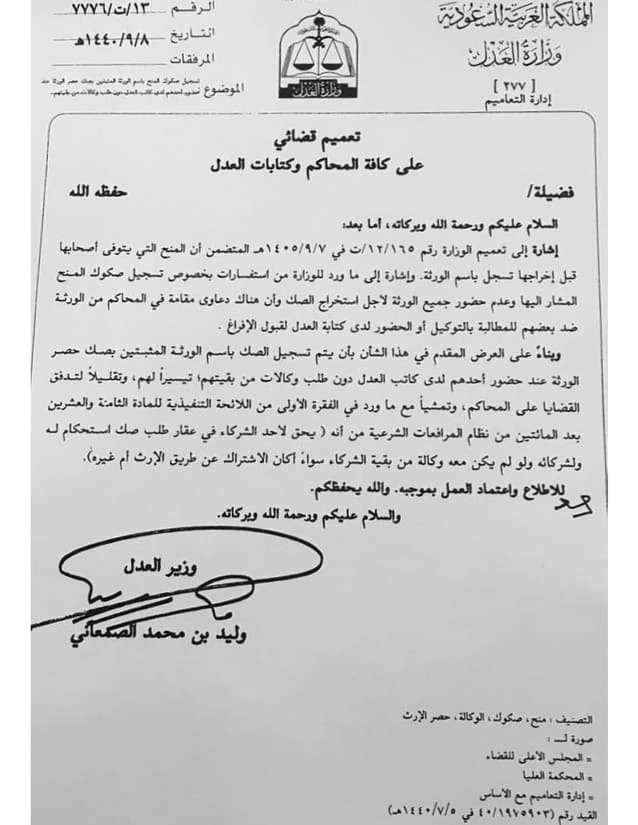 المملكة العربية السعودية
وزارة العدل
[ ٢٧٧ ]
إدارة التعاميم
وزارة العدل
الرقم ١٣/ت/٧٧٧٦
التاريخ ١٤٤٠/٩/٨هـ
المرفقات
الموضوع تسجيل صكوك المنح باسم الورثة المثبتين بصك حصر الورثة عند
حضور أحدهم لدى كاتب العدل دون طلب وكالات من بقيتهم.
تعميم قضائي
على كافة المحاكم وكتابات العدل
فضيلة/ حفظه الله
السلام عليكم ورحمة الله وبركاته، أما بعد:
إشارة إلى تعميم الوزارة رقم ١٢/١٦٥/ت في ١٤٠٥/٩/٧هـ المتضمن أن المنح التي يتوفى أصحابها
قبل إخراجها تسجل باسم الورثة. وإشارة إلى ما ورد للوزارة من استفسارات بخصوص تسجيل صكوك المنح
المشار اليها وعدم حضور جميع الورثة لأجل استخراج الصك وأن هناك دعاوى مقامة في المحاكم من الورثة
ضد بعضهم للمطالبة بالتوكيل أو الحضور لدى كتابة العدل لقبول الإفراغ .
وبناءً على العرض المقدم في هذا الشأن بأن يتم تسجيل الصك باسم الورثة المثبتين بصك حصر
الورثة عند حضور أحدهم لدى كاتب العدل دون طلب وكالات من بقيتهم؛ تيسيراً لهم، وتقليلاً لتدفق
القضايا على المحاكم، وتمشياً مع ما ورد في الفقرة الأولى من اللائحة التنفيذية للمادة الثامنة والعشرين
بعد المائتين من نظام المرافعات الشرعية من أنه ( يحق لأحد الشركاء في عقار طلب صك استحكام لـه
ولشركائه ولو لم يكن معه وكالة من بقية الشركاء سواءً أكان الاشتراك عن طريق الإرث أم غيره).
للاطلاع واعتماد العمل بموجبه. والله يحفظكم.
والسلام عليكم ورحمة الله وبركاته.
وزير العدل
وليد بن محمد الصمعاني
التصنيف : منح، صكوك، الوكالة، حصر الإرث
صورة لـــ :
= المجلس الأعلى للقضاء
= المحكمة العليا
= إدارة التعاميم مع الأساس
القيد رقم (٤٠/١٩٧٥٩٠٣ في ١٤٤٠/٧/٥هـ)